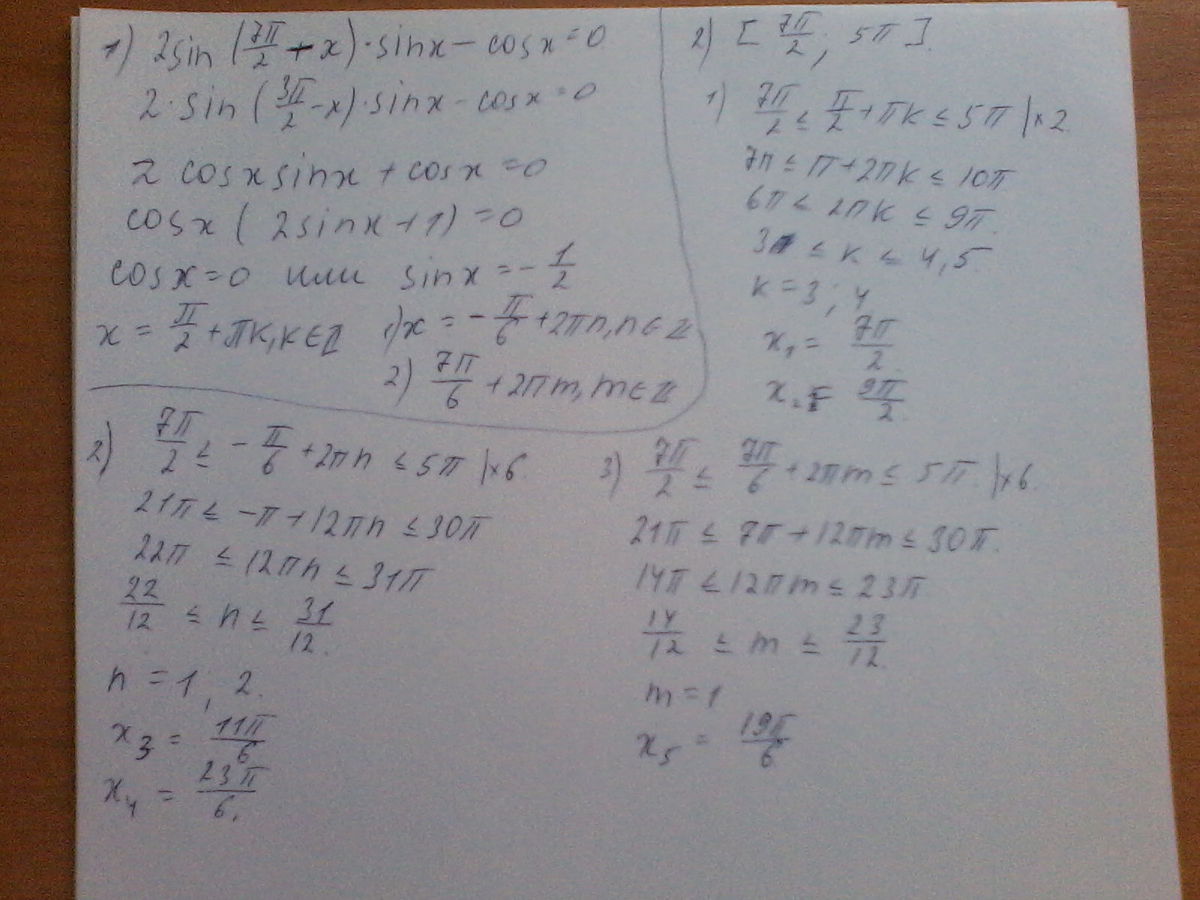 1) 2sin (7π/2 + x)·sinx − cosx = 0
2·sin (3π/2 − x)·sinx − cosx = 0
2 cosx sinx + cosx = 0
cosx ( 2sinx + 1) = 0
cosx = 0 или sinx = −1/2
x = π/2 + πk, k ∈ Z 1) x = −π/6 + 2πn, n ∈ Z
2) 7π/6 + 2πm, m ∈ Z
2) [ 7π/2 ; 5π ]
1) 7π/2 ≤ π/2 + πk ≤ 5π | ×2
7π ≤ π + 2πk ≤ 10π
6π ≤ 2πk ≤ 9π
3 ≤ k ≤ 4,5
k = 3 ; 4
x₁ = 7π/2
x₂ = 9π/2
2) 7π/2 ≤ −π/6 + 2πn ≤ 5π | ×6
21π ≤ −π + 12πn ≤ 30π
22π ≤ 12πn ≤ 31π
22/12 ≤ n ≤ 31/12
n = 1 , 2.
x₃ = 11π/6
x₄ = 23π/6.
3) 7π/2 ≤ 7π/6 + 2πm ≤ 5π | ×6
21π ≤ 7π + 12πm ≤ 30π
14π ≤ 12πm ≤ 23π
14/12 ≤ m ≤ 23/12
m = 1
x₅ = 19π/6